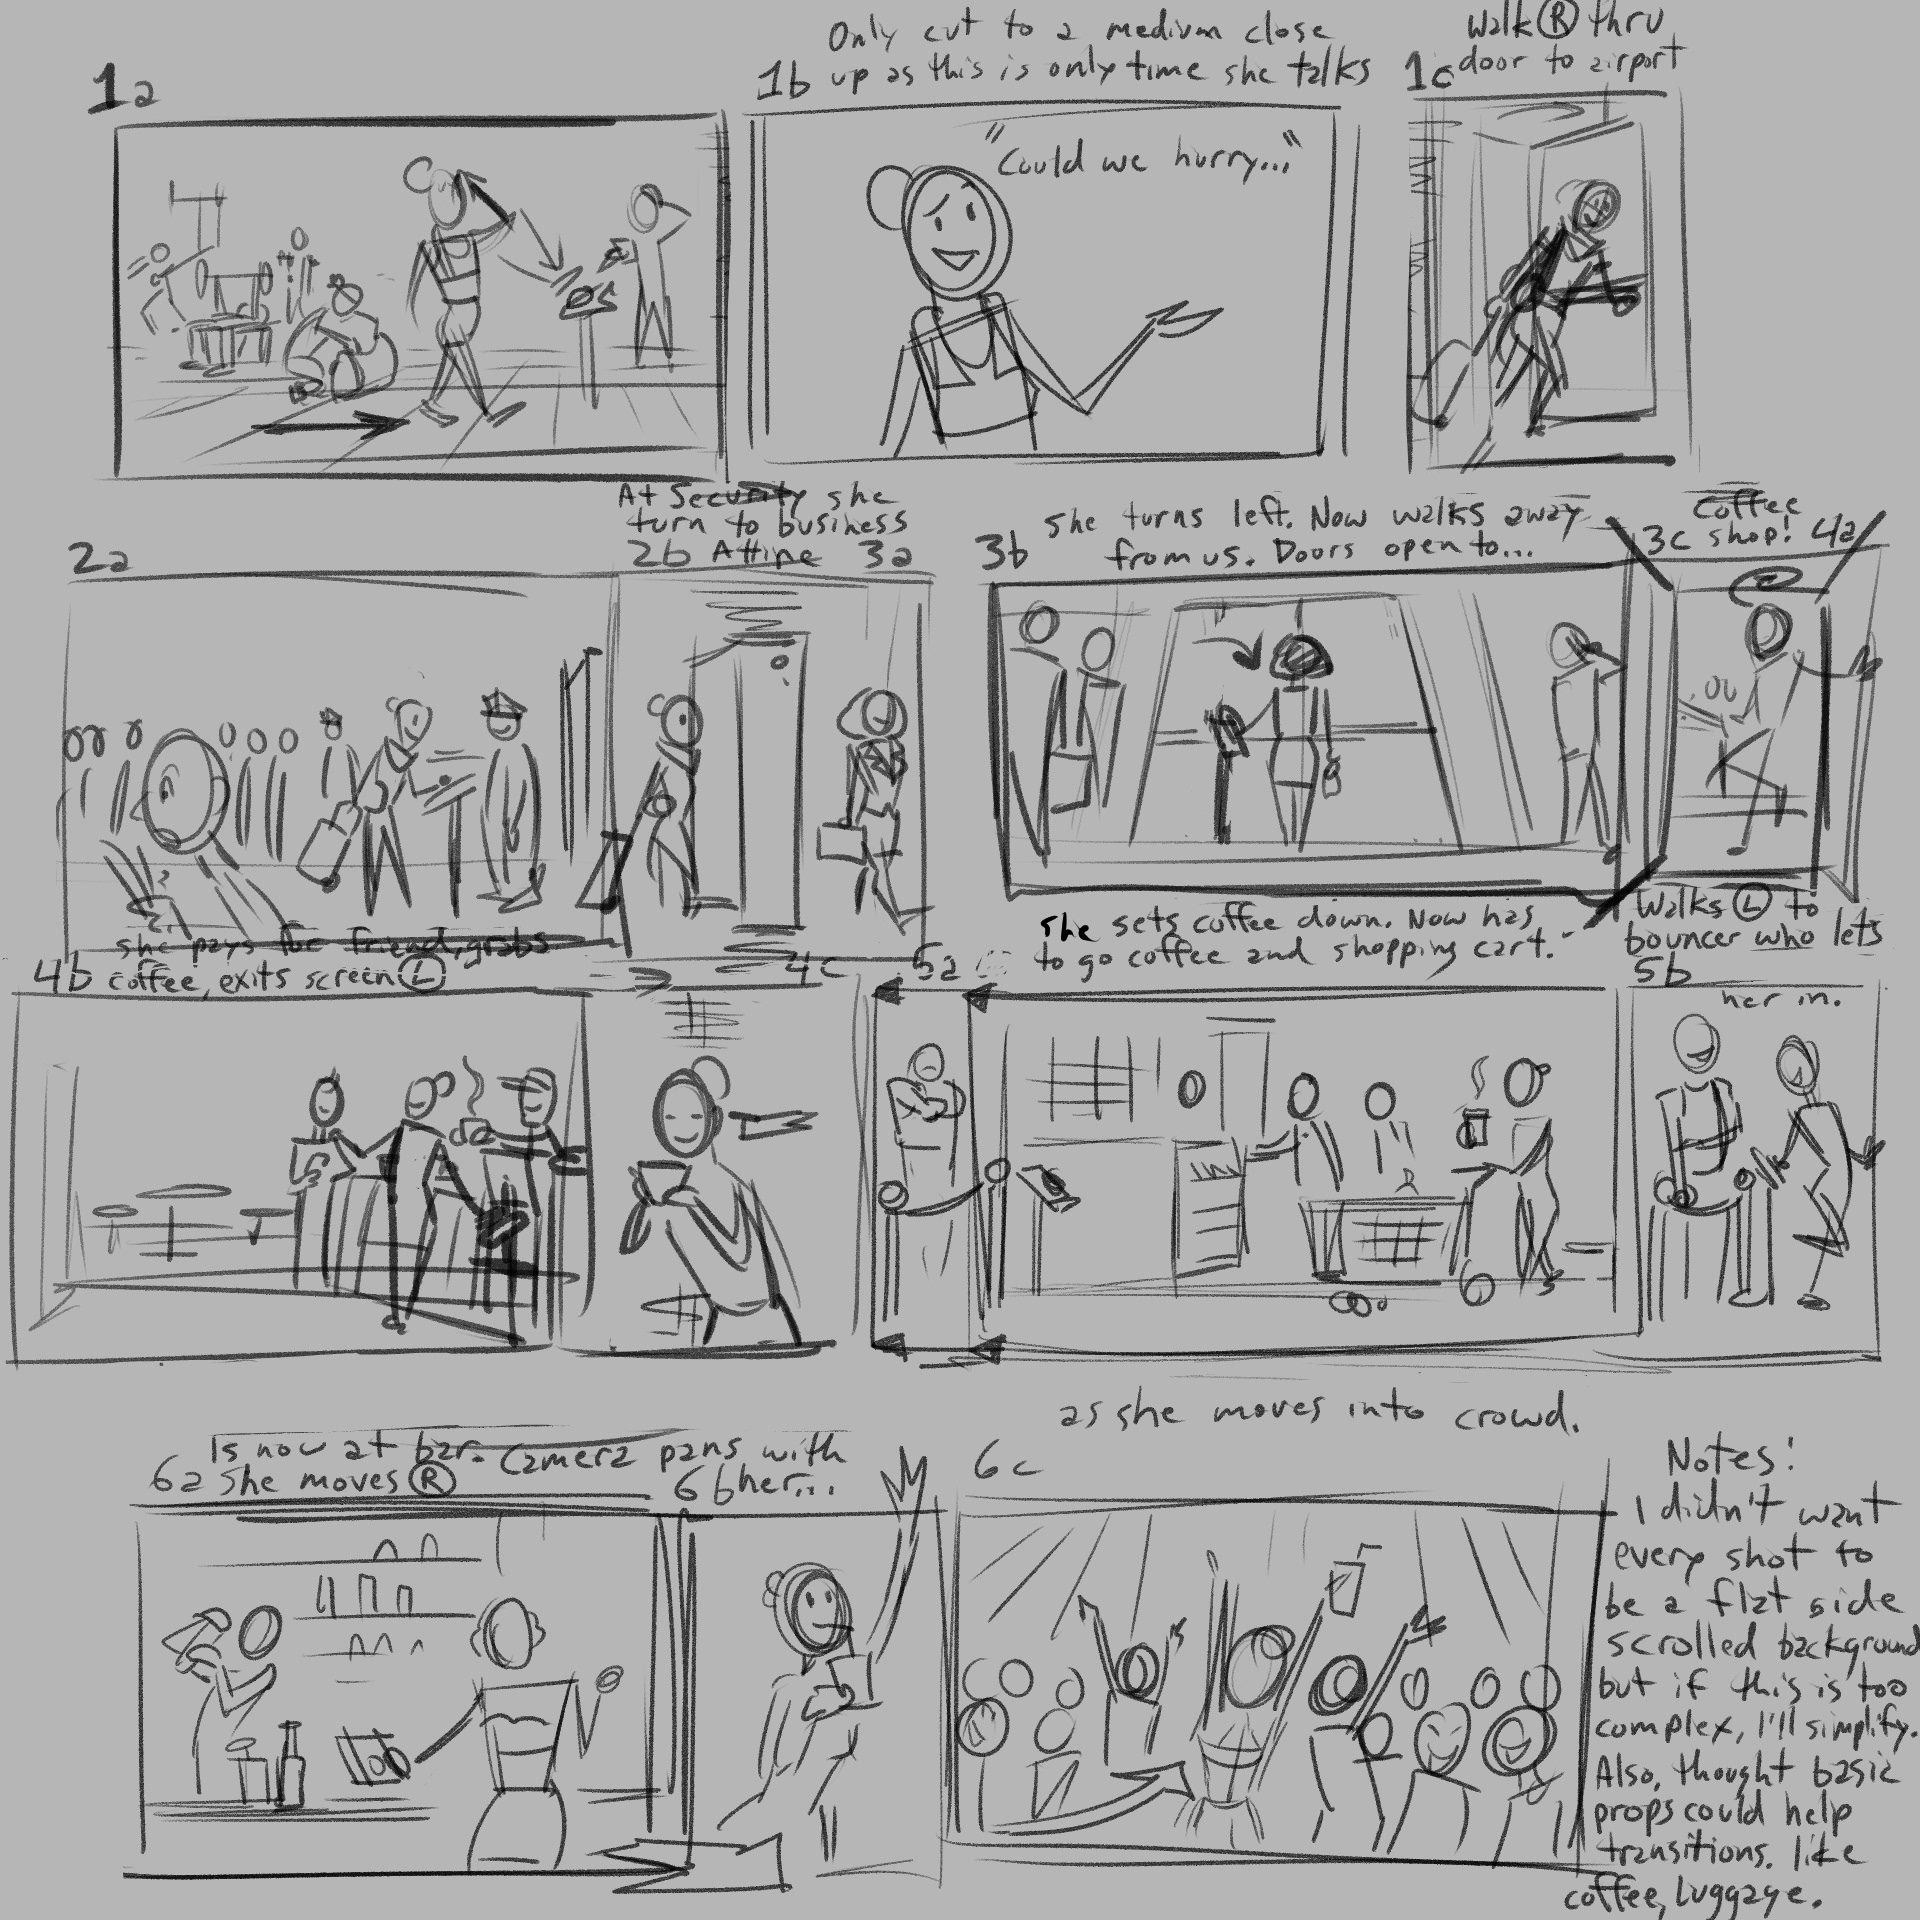 1a
Only cut to a medium close
1b up as this is only time she talks
"Could we hurry..."
Walk Ⓡ thru
1c door to airport
2a
At Security she
turn to business
2b Attire 3a
3b
she turns left. Now walks away
from us. Doors open to...
Coffee
3c shop! 4a
she pays for friend, grabs
4b coffee, exits screen Ⓛ
4c 5a
she sets coffee down. Now has
to go coffee and shopping cart.
Walks Ⓛ to
bouncer who lets
5b
her in.
Is now at bar. Camera pans with
6a She moves Ⓡ 6b her...
as she moves into crowd.
6c
Notes!
I didn't want
every shot to
be a flat side
scrolled background
but if this is too
complex, I'll simplify.
Also, thought basic
props could help
transitions. like
coffee, luggage.